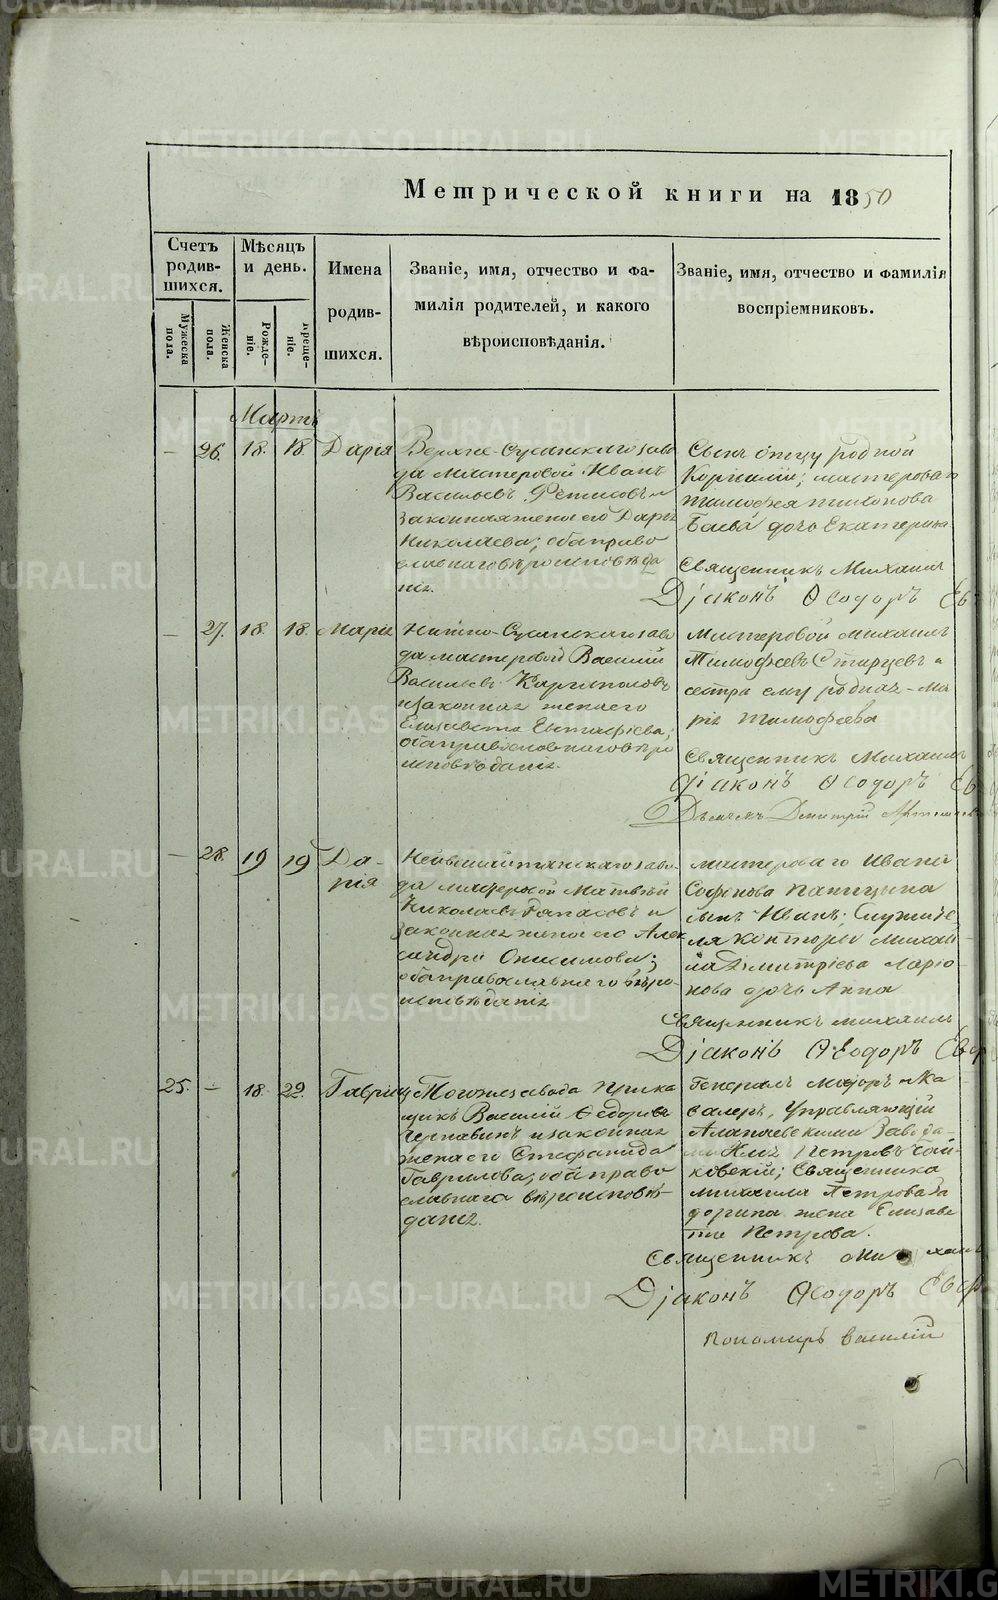 Метрической книги на 1850
Счетъ родив-шихся.
Мѣсяцъ и день.
Имена родив-шихся.
Званіе, имя, отчество и фа-
милія родителей, и какого
вѣроисповѣданія.
Званіе, имя, отчество и фамилія
воспріемниковъ.
Мужеска пола.
Женска пола.
Рожде-ніе.
Креще-ніе.
Мартъ
— 26. 18. 18. Дарія
Верхне-Сусанскаго заво
да мастеровой Иванъ
Васильевъ и
законная жена его Дарья
Николаева; оба право
славнаго вѣроисповѣда
нія.
Сынъ отцу родной
Корнилій; мастероваго
Тимофея Тихонова
Баева дочь Екатерина
Священникъ Михаил
Діаконъ Ѳеодоръ Ев
— 27. 18. 18. Марія
Нейво-Сусанскаго заво
да мастеровой Василій
Васильевъ Каргаполовъ
и законная жена его
Елизавета Евстафіева;
оба православнаго вѣро
исповѣданія.
Мастеровой Михаилъ
Тимофеевъ Старцевъ и
сестра ему родная - Ма
рія Тимофеева
Священникъ Михаилъ
Діаконъ Ѳеодоръ Ев
Дьячекъ Дмитрій
— 28. 19 19 Да-
рія
Нейвошайтанскаго заво-
да мастеровой Матвѣй
Николаевъ и
законная жена его Алек
сандра Онисимова;
оба православнаго вѣро-
исповѣданія
мастероваго Ивана
Софонова Паницина
сынъ Иванъ; Служите-
ля конторы Михаи-
ла Димитріева Ларіо-
нова дочь Анна
Священникъ Михаилъ
Діаконъ Ѳеодоръ Евф
25. — 18. 22. Гавриилъ
Тогоже завода Прика
щикъ Василій Ѳедоровъ
Чернавинъ и законная
жена его Стефанида
Гаврилова, оба право
славнаго вѣроисповѣ-
данія.
Генералъ Маіоръ и Ка
валеръ, Управляющій
Алапаевскими Завода-
ми Илья Петровъ Чай-
ковскій; Священника
Михаила Петрова За
дорина жена Елизаве
та Петрова.
Священникъ Михаил
Діаконъ Ѳеодоръ Евф
Пономарь Василій
METRIKI.GASO-URAL.RU